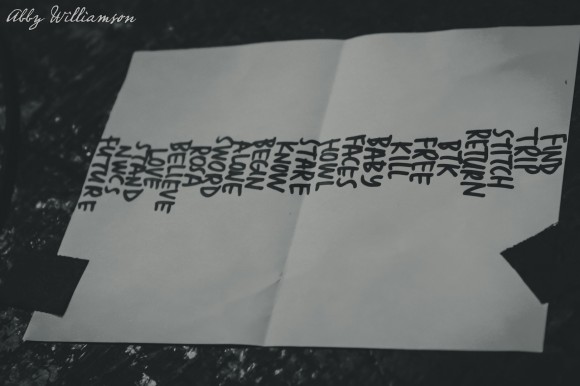 Abby Williamson
TRIP
STITCH
RETURN
BTK
FREE
KILL
BABY
FACES
HOWL
STARE
KNOW
BEGAN
ALONE
SWORD
ROSA
BELIEVE
LOVE
STAND
NWCS
FUTURE